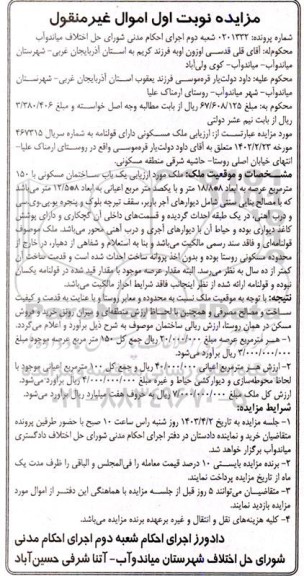 مزایده نوبت اول اموال غیرمنقول
شماره پرونده: ۰۲۰۱۳۳۲ شعبه دوم اجرای احکام مدنی شورای حل اختلاف میاندوآب
محکوم‌له: آقای قلی قدسی اوزون اوبه فرزند کریم به استان آذربایجان غربی- شهرستان
میاندوآب- میاندوآب- کوی ولی‌آباد
محکوم علیه: داود دولت‌یار قره‌موسی فرزند یعقوب استان آذربایجان غربی- شهرستان
میاندوآب- شهر میاندوآب- روستای ارمناک علیا
محکوم به: مبلغ ۶۷/۶۰۸/۱۲۵ ریال از بابت مطالبه وجه اصل خواسته و مبلغ ۳/۳۸۰/۴۰۶
ریال از بابت نیم عشر دولتی
مورد مزایده عبارتست از: ارزیابی ملک مسکونی دارای قولنامه به شماره سریال ۴۶۷۳۱۵
مورخه ۱۴۰۲/۲/۲۳ متعلق به آقای داود دولت‌یار قره‌موسی واقع در روستای ارمناک علیا-
انتهای خیابان اصلی روستا- حاشیه شرقی منطقه مسکونی.
مشخصات و موقعیت ملک: ملک مورد ارزیابی یک باب ساختمان مسکونی با ۱۵۰
مترمربع عرصه به ابعاد ۱۸/۸۵۸ متر و با یکصد متر مربع اعیانی به ابعاد ۱۲/۵۵۸ متر می‌باشد
که با مصالح بنایی سنتی شامل دیوارهای آجر باربر، سقف تیرچه بلوک و پنجره یوپی‌وی‌سی
و درب آهنی، در یک طبقه احداث گردیده و قسمت‌های داخلی آن گچکاری و دارای پوشش
کاغذ دیواری بوده و حیاط آن با دیوارهای آجری و درب آهنی محصور می‌باشد. ملک موصوف
قولنامه‌ای و فاقد سند رسمی مالکیت می‌باشد و بنا به استعلام و شفاهی از دهیار، در خارج از
محدوده مسکونی روستا بوده و بدون اخذ پروانه ساخت احداث شده است و قدمت ساخت آن
کمتر از ده سال به نظر می‌رسد. البته مقدار عرصه موجود با مقدار قید شده در قولنامه یکسان
نبوده و قولنامه ارائه شده از نظر اینجانب فاقد شرایط احراز مالکیت می‌باشد.
نتیجه: با توجه به موقعیت ملک نسبت به محدوده و معابر روستا و با عنایت به قدمت و کیفیت
ساخت و مصالح مصرفی و همچنین با لحاظ ارزش منطقه‌ای و میزان رونق خرید و فروش
مسکن در همان روستا، ارزش ریالی ساختمان موصوف به شرح ذیل برآورد و اعلام می‌گردد.
۱- هر مترمربع عرصه مبلغ ۲۰/۰۰۰/۰۰۰ ریال جمع کل ۱۵۰ متر مربع عرصه موجود مبلغ
۳/۰۰۰/۰۰۰/۰۰۰ ریال برآورد می‌شود.
۲- ارزش هر مترمربع اعیانی ۴۰/۰۰۰/۰۰۰ ریال و جمع کل ۱۰۰ مترمربع اعیانی موجود با
لحاظ محوطه‌سازی و دیوارکشی حیاط و غیره مبلغ ۴/۰۰۰/۰۰۰/۰۰۰ ریال برآورد می‌شود.
ارزش کل ملک، مبلغ ۷/۰۰۰/۰۰۰/۰۰۰ ریال به حروف هفت میلیارد ریال برآورد می‌شود.
شرایط مزایده:
۱- جلسه مزایده به تاریخ ۱۴۰۳/۴/۲ روز شنبه راس ساعت ۱۰ صبح با حضور طرفین پرونده
متقاضیان خرید و نماینده دادستان در دفتر اجرای احکام مدنی شورای حل اختلاف دادگستری
میاندوآب برگزار خواهد شد.
۲- برنده مزایده بایستی ۱۰ درصد قیمت معامله را فی‌المجلس و الباقی را ظرف مدت یک
ماه از تاریخ مزایده پرداخت نمایند.
۳- متقاضیان می‌توانند ۵ روز قبل از جلسه مزایده با هماهنگی این دفتر از اموال مورد
مزایده بازدید نمایند.
۴- کلیه هزینه‌های نقل و انتقال و غیره برعهده برنده مزایده می‌باشد.
دادورز اجرای احکام شعبه دوم اجرای احکام مدنی
شورای حل اختلاف شهرستان میاندوآب- آتنا شرفی حسین‌آباد